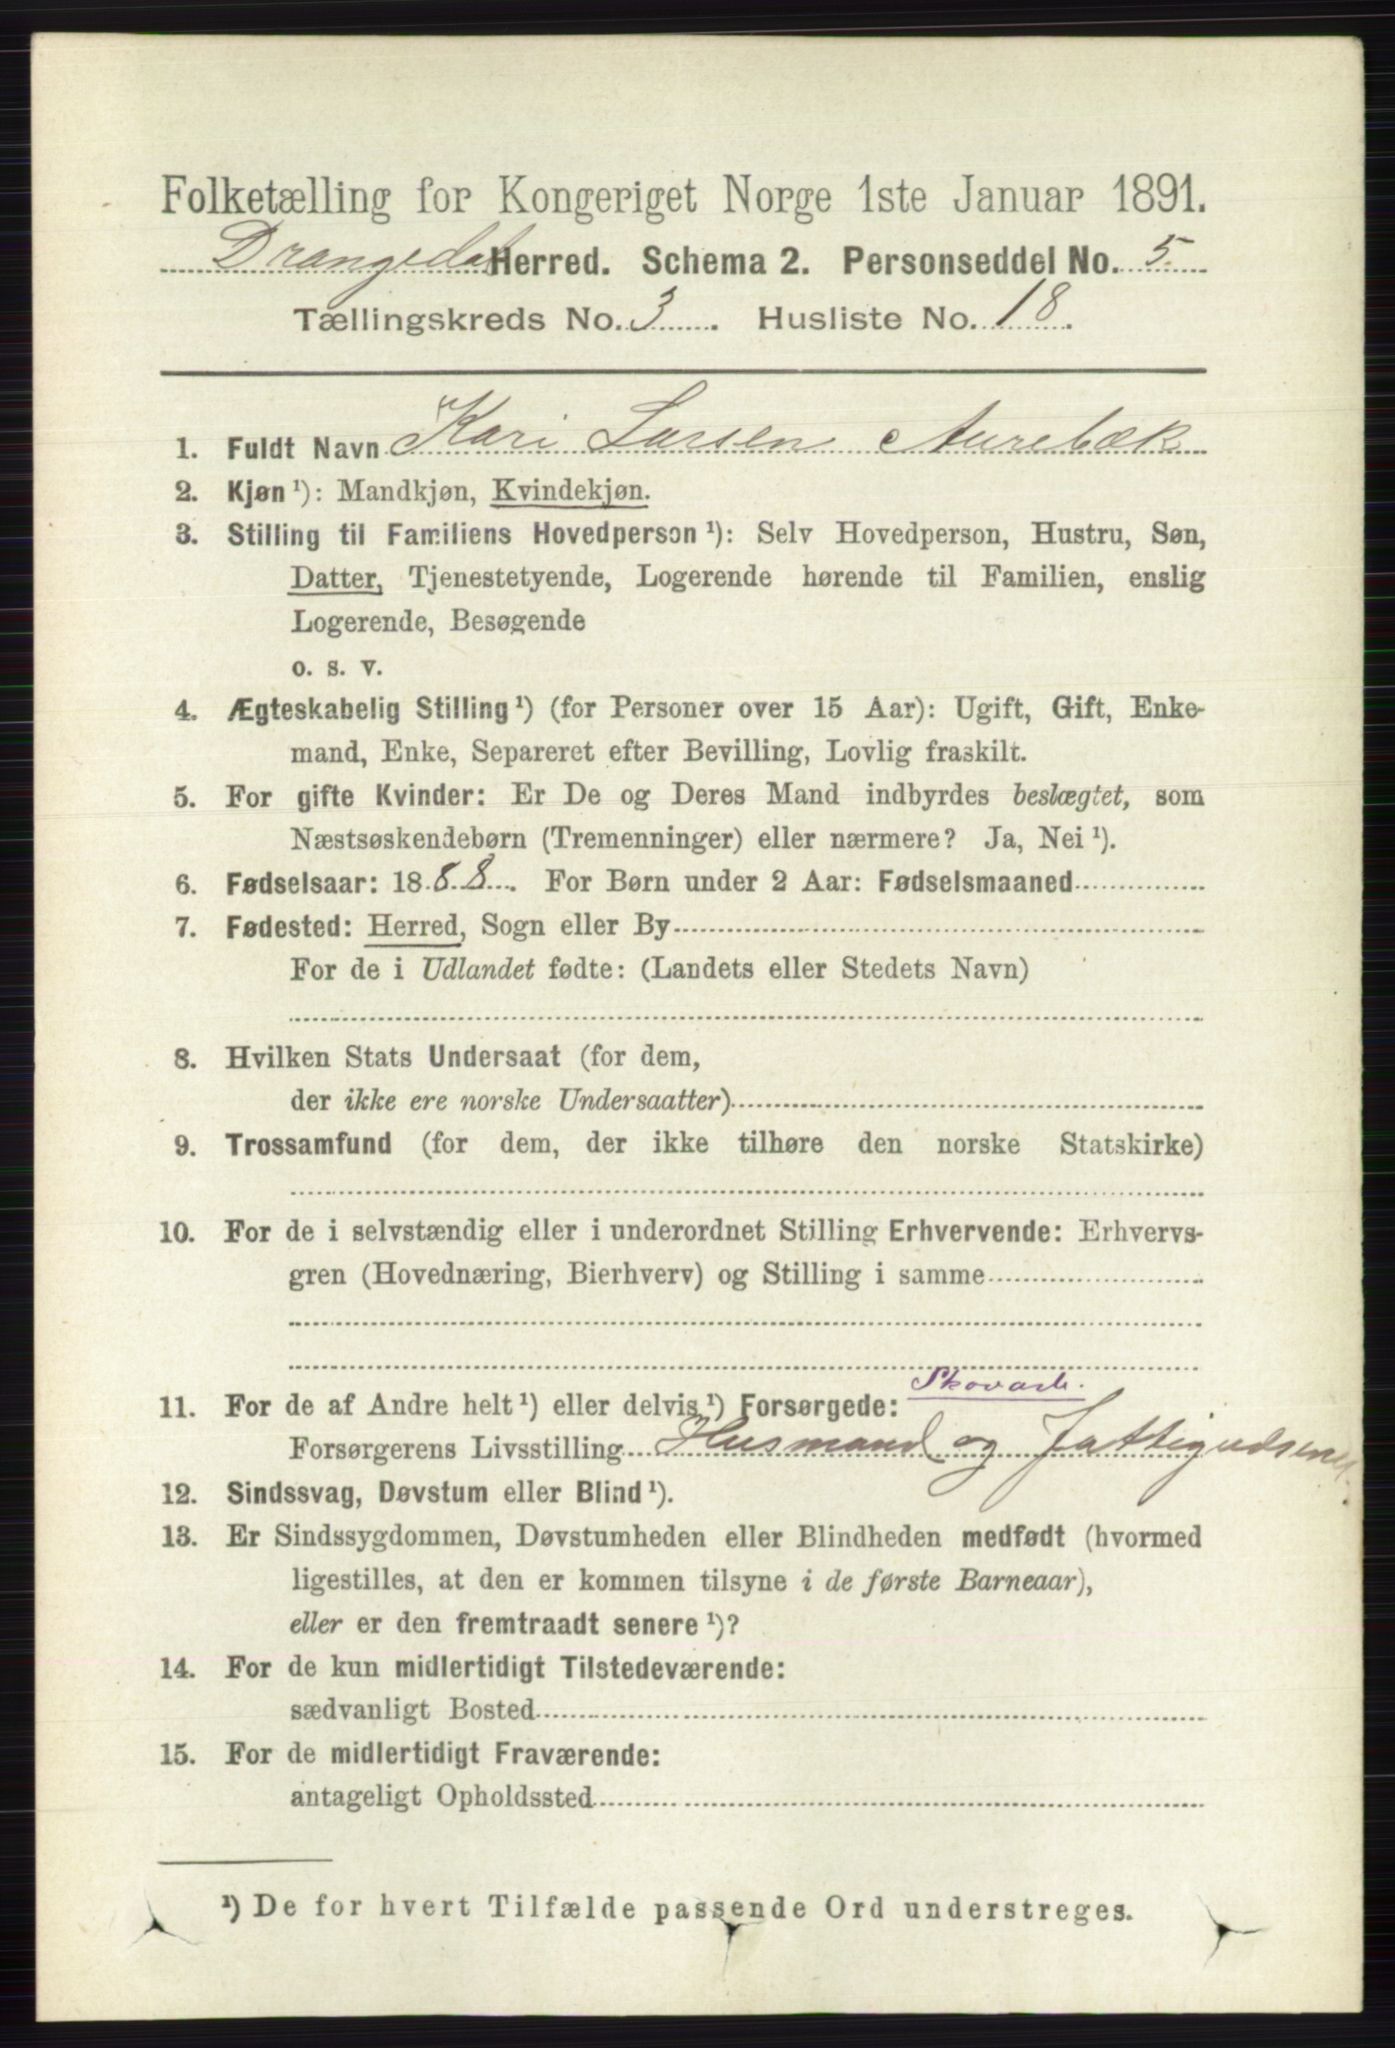 Folketælling for Kongeriget Norge 1ste Januar 1891.
Drangedal Herred. Schema 2. Personseddel No. 5
Tællingskreds No. 3. Husliste No. 18.
1. Fuldt Navn Kari Larsen Aurebæk
2. Kjøn¹): Mandkjøn, Kvindekjøn.
3. Stilling til Familiens Hovedperson¹): Selv Hovedperson, Hustru, Søn,
Datter, Tjenestetyende, Logerende hørende til Familien, enslig
Logerende, Besøgende
o. s. v.
4. Ægteskabelig Stilling¹) (for Personer over 15 Aar): Ugift, Gift, Enke-
mand, Enke, Separeret efter Bevilling, Lovlig fraskilt.
5. For gifte Kvinder: Er De og Deres Mand indbyrdes beslægtet, som
Næstsøskendebørn (Tremenninger) eller nærmere? Ja, Nei¹).
6. Fødselsaar: 1888. For Børn under 2 Aar: Fødselsmaaned
7. Fødested: Herred, Sogn eller By
For de i Udlandet fødte: (Landets eller Stedets Navn)
8. Hvilken Stats Undersaat (for dem,
der ikke ere norske Undersaatter)
9. Trossamfund (for dem, der ikke tilhøre den norske Statskirke)
10. For de i selvstændig eller i underordnet Stilling Erhvervende: Erhvervs-
gren (Hovednæring, Bierhverv) og Stilling i samme
Skovarb.
11. For de af Andre helt¹) eller delvis¹) Forsørgede:
Forsørgerens Livsstilling Husmand og
12. Sindssvag, Døvstum eller Blind¹).
13. Er Sindssygdommen, Døvstumheden eller Blindheden medfødt (hvormed
ligestilles, at den er kommen tilsyne i de første Barneaar),
eller er den fremtraadt senere¹)?
14. For de kun midlertidigt Tilstedeværende:
sædvanligt Bosted
15. For de midlertidigt Fraværende:
antageligt Opholdssted
¹) De for hvert Tilfælde passende Ord understreges.